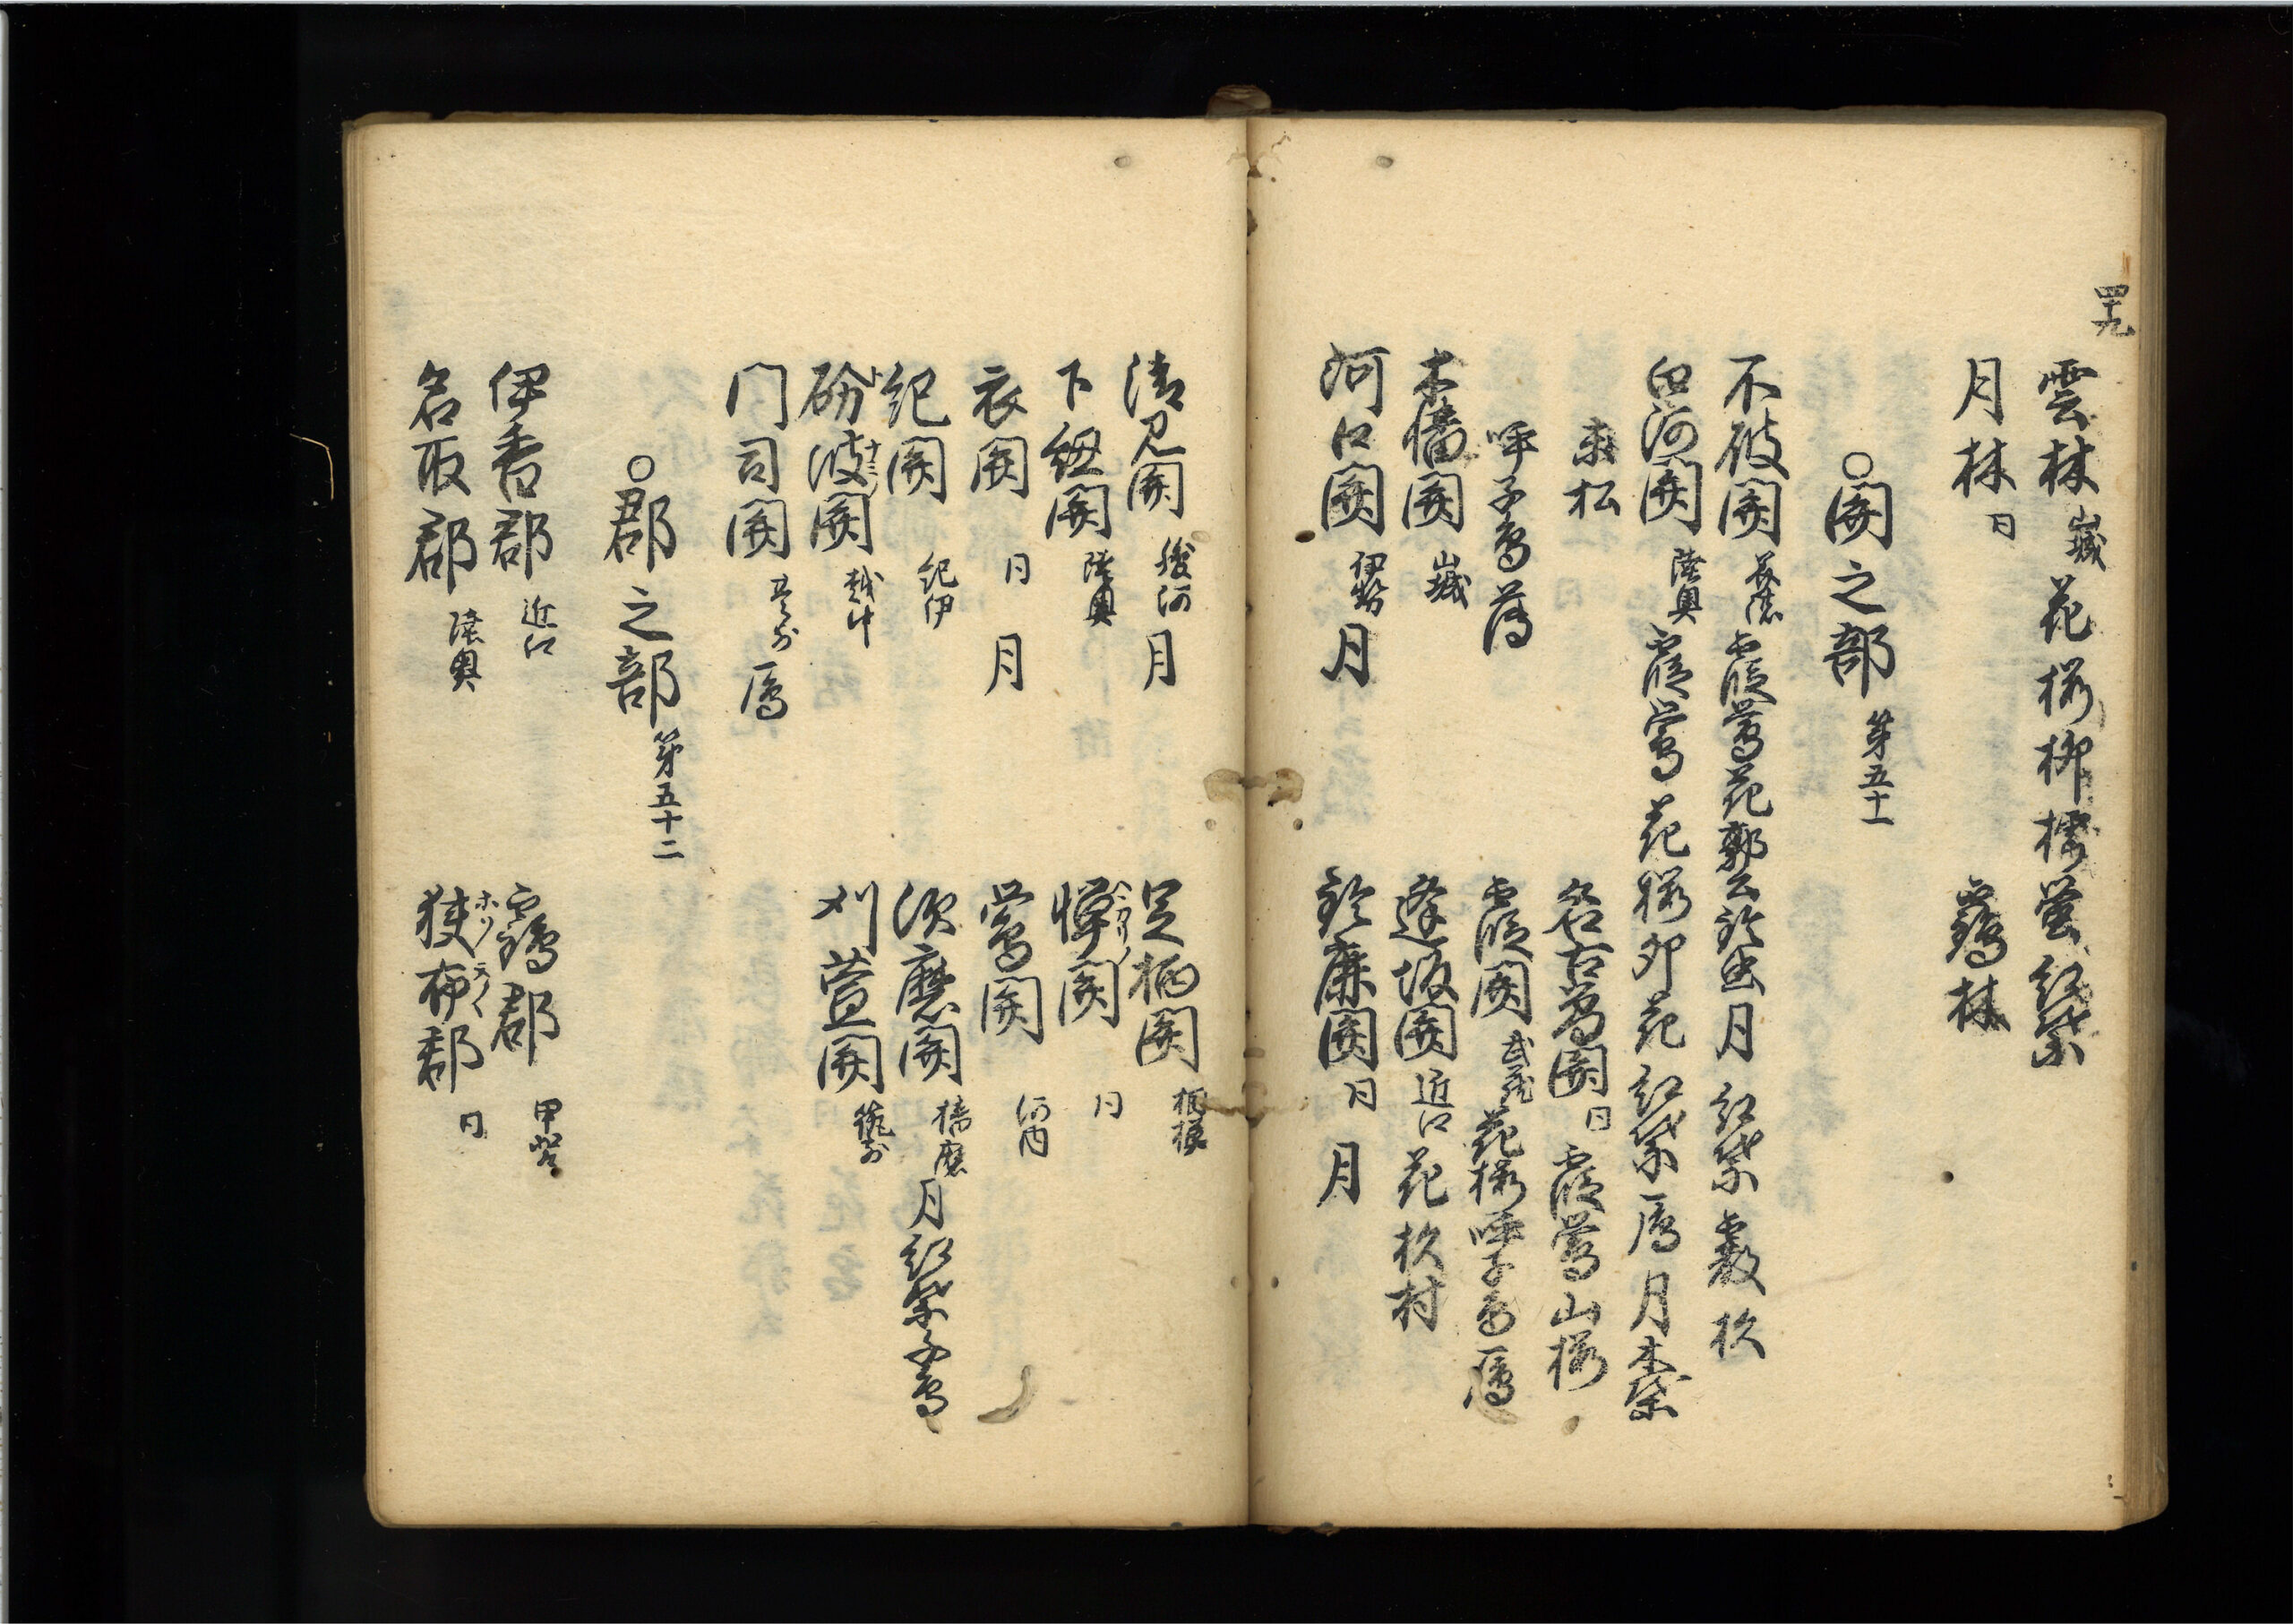 四十九
雲林 山城 花 桜 柳 橘 蛍 紅葉
月林 同 鶴林
○関之部 第五十一
不破関 美濃 霞 鶯 花 郭公 鈴虫 月 紅葉 霰 杦
白河関 陸奥 霞 鶯 花 桜 卯花 紅葉 鴈 月 木葉
松
名古曽関 同 霞 鶯 山桜
呼子鳥 薄
霞関 武蔵 花 桜 呼子鳥 鴈
木幡関 山城
逢坂関 近江 花 杦村
河口関 伊勢 月
鈴鹿関 同 月
清見関 駿河 月
足柄関 相模
下紐関 陸奥
憚関 同
衣関 同 月
鶯関 河内
紀関 紀伊
須磨関 播磨 月 紅葉 千鳥
砺波関 越中
刈萱関 筑前
門司関 豊前 鴈
○郡之部 第五十二
伊香郡 近江
鶴郡 甲斐
名取郡 陸奥
狭布郡 同